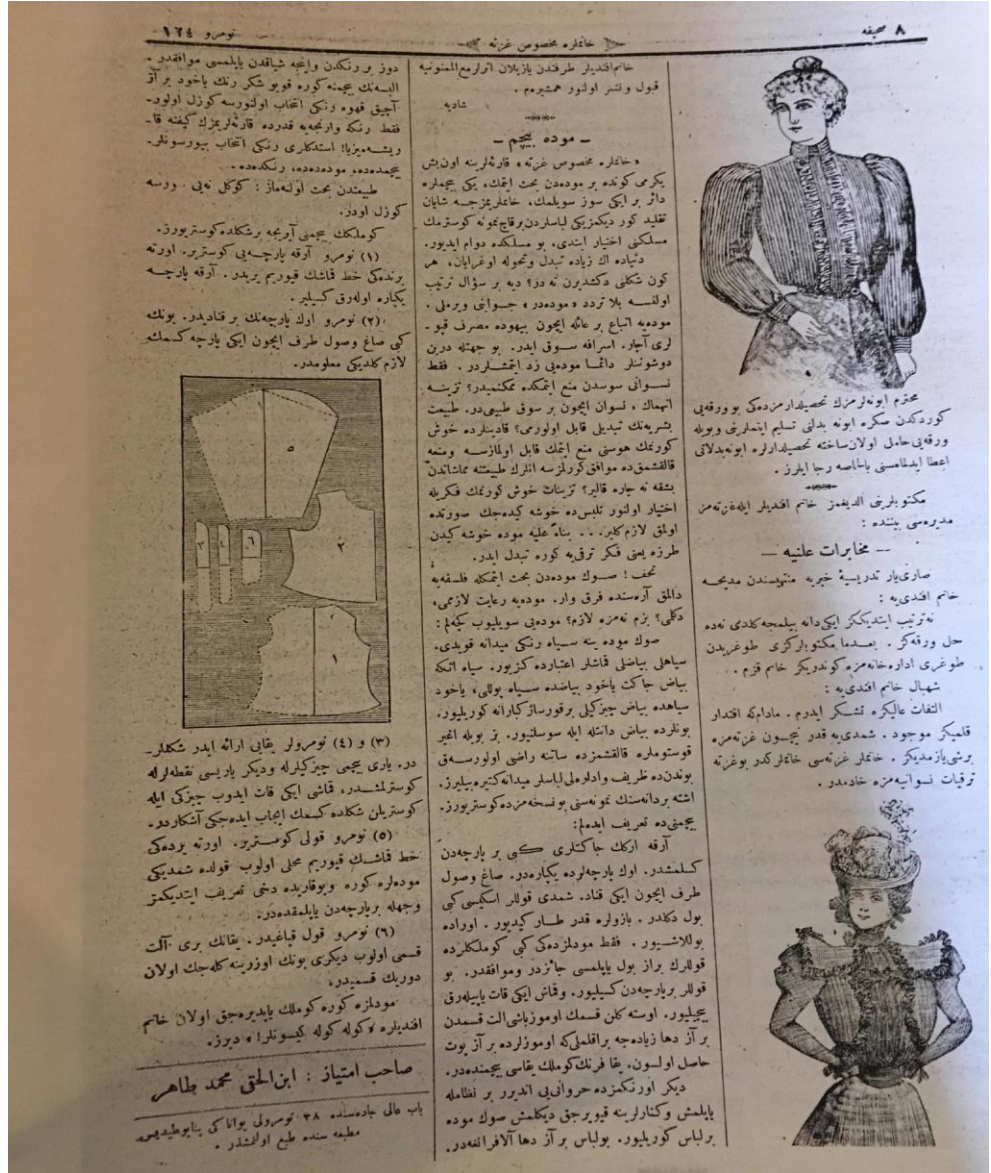 ٨ صحیفه
خانملره مخصوص غزته
نومرو ١٢٤
محترم ابونه‌لرمزك تحصیلدارمزده‌كی بو ورقه‌یی
كوردكدن سكره ابونه بدلنی تسلیم ایتملرینی وبویله
ورقه‌یی حامل اولان ساخته تحصیلدارلره ابونه بدلاتی
اعطا ایدلمامسنی بالخاصه رجا ایلرز .
مكتوبلرینی الدیغمز خانم افندیلر ایله غزته‌مز
مدیره‌سی بیننده :
— مخابرات علنیه —
صاری‌یار تدریسیهٔ خیریه منتهیسندن مدیحه
خانم افندی‌یه :
ترتیب ایتدیككز ایكی دانه بیلمجه كلدی نه‌ده
حل ورقه‌كز . بعدما مكتوبلركزی طوغریدن
طوغری اداره‌خانه‌مزه كوندریكز خانم قزم .
شهبال خانم افندی‌یه :
التفات عالیكزه تشكر ایدرم . مادامكه اقتدار
قلمیكز موجود . شمدی‌یه قدر نیچون غزته‌مزه
برشی یازمدیكز . خانملر غزته‌سی خانملركدر بو غزته
ترقیات نسوانیه‌مزه خادمدر .
خانم افندیلر طرفندن یازیلان اثرلر مع الممنونیه
قبول ونشر اولنور همشیره‌م .
شادیه
— موده بیچم —
« خانملره مخصوص غزته » قارئه‌لرینه اون بش
یكرمی كونده بر موده‌دن بحث ایتمك، یكی بیچملره
دائر بر ایكی سوز سویلمك، خانملریمزجه شایان
تقلید كوردیكمز یكی لباسلردن برقاچ نمونه كوسترمك
مسلكنی اختیار ایتدی، بو مسلكده دوام ایدیور.
دنیاده اك زیاده تبدل وتحوله اوغرایان، هر
كون شكلنی دكشدیرن نه در؟ دیه بر سؤال ترتیب
اولنسه بلا تردد « موده‌در » جوابی ویرملی .
موده‌یه اتباع بر عائله ایچون بیهوده مصرف قپو-
لری آچار. اسرافه سوق ایدر. بو جهتله درین
دوشوننلر دائما موده‌یی رد ایتمشلردر . فقط
نسوانی سوسدن منع ایتمكده ممكنمیدر؟ تزیینه
انهماك ، نسوان ایچون بر سوق طبیعی‌در. طبیعت
بشریه‌نك تبدیلی قابل اولورمی؟ قادینلرده خوش
كورنمك هوسنی منع ایتمك قابل اولمازسه ومنعه
قالقشمق‌ده موافق كورلمزسه انلرك طبیعتنه مماشاتدن
بشقه نه چاره قالیر؟ تزینات خوش كورنمك فكریله
اختیار اولنور تلبس‌ده خوشه كیده‌جك صورتده
اولمق لازم كلیر. . . بناءً علیه موده خوشه كیدن
طرزه یعنی فكر ترقی‌یه كوره تبدل ایدر.
تحف ! صوك موده‌دن بحث ایتمكله فلسفه‌یه
دالمق آره‌سنده فرق وار. موده‌یه رعایت لازممی،
دكلمی؟ بزم نه‌مزه لازم؟ موده‌یی سویلیوب كچه‌لم :
صوك موده ینه سیاه رنكی میدانه قویدی.
سیاهلی بیاضلی قماشلر اعتبارده كزیور. سیاه اتكه
بیاض جاكت یاخود بیاضده سیاه یوللی، یاخود
سیاهده بیاض چیزكیلی برقورساژ كبارانه كوریلیور.
بونلرده بیاض دانتله ایله سوسلنیور. بز بویله اغیر
قوستوملره قالقشمزده ساتنه راضی اولورسه‌ق
بوندن‌ده ظریف وادالی لباسلر میدانه كتیره بیلیرز.
اشته بر دانه‌سنك نمونه‌سنی بو نسخه‌مزده كوستریورز.
بیچمنی‌ده تعریف ایده‌لم :
آرقه اركك جاكتلری كبی بر پارچه‌دن
كسلمشدر. اوك پارچه‌لرده یكپاره‌در. صاغ وصول
طرف ایچون ایكی قناد. شمدی قوللر اسكیسی كبی
بول دكلدر. بازولره قدر طار كیدیور. اوراده
بوللاشیور . فقط مودلمزده‌كی كبی كوملكلرده
قوللرك براز بول یاپلمسی جائزدر وموافقدر. بو
قوللر بر پارچه‌دن كسیلیور. وقماش ایكی قات یاپیله‌رق
بیچیلیور. اوسته كلن قسمك اوموز باشی الت قسمدن
بر آز دها زیاده‌جه براقلملی‌كه اوموزلرده بر آز پوت
حاصل اولسون. یقا فرنك كوملك یقاسی بیچمنده‌در.
دیكر اورنكمزده حروانی‌یی اندیرر بر نظامله
یاپلمش وكنارلرینه قیویرجق دیكلمش صوك موده
بر لباس كوریلیور. بو لباس بر آز دها آلافرانغه‌در.
دوز بر رنكدن واینجه شیاقدن یاپلمسی موافقدر .
البسه‌نك بیچمنه كوره قویو شكر رنك یاخود بر آز
آچیق قهوه رنكی انتخاب اولنورسه كوزل اولور.
فقط رنكه وارنجه‌یه قدرده قارئه‌لریمزك كیفنه قا-
ریشه‌میز یا! استدكلری رنكی انتخاب بیورسونلر.
بیچمده‌ده، موده‌ده‌ده، رنكده‌ده.
طبیعتدن بحث اولنه‌ماز : كوكل نه‌یی . ووسه
كوزل اودر.
كوملكك بیچمنی آیریجه بر شكلده كوستریورز.
(١) نومرو آرقه پارچه‌یی كوستریر. اورته
یرنده‌كی خط قماشك قیوریم یریدر. آرقه پارچه
یكپاره اوله‌رق كسیلیر .
(٢) نومرو اوك پارچه‌نك بر قنادیدر. بونك
كبی صاغ وصول طرف ایچون ایكی پارچه كسمك
لازم كلدیكی معلومدر.
٥
٣
٤
٦
٢
١
(٣) و (٤) نومرولر یقایی ارائه ایدر شكللر-
در. یاری بیچمی چیزكیلرله ودیكر یاریسی نقطه‌لرله
كوسترلمشدر، قماشی ایكی قات ایدوب چیزكی ایله
كوستریلن شكلده كسمك ایجاب ایده‌جكی آشكاردر.
(٥) نومرو قولی كوستریر. اورته یرده‌كی
خط قماشك قیوریم محلی اولوب قولده شمدیكی
موده‌لره كوره ویوقاریده دخی تعریف ایتدیكمز
وجهله بر پارچه‌دن یاپلمقده‌در.
(٦) نومرو قول قپاغیدر. یقانك بری آلت
قسمی اولوب دیكری بونك اوزرینه كله‌جك اولان
دوریك قسمیدر.
مودلمزه كوره كوملك یاپدیره‌جق اولان خانم
افندیلره « كوله كوله كیسونلر! » دیرز.
صاحب امتیاز : ابن الحقی محمد طاهر
باب عالی جاده‌سنده ٣٨ نومرولی
مطبعه سنده طبع اولنمشدر .